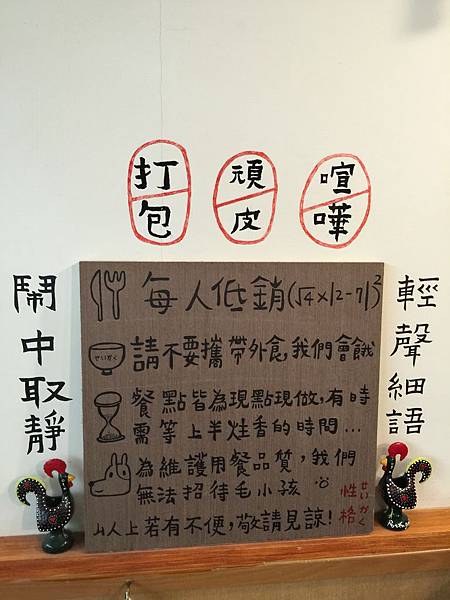 打包
頑皮
喧嘩
鬧中取靜
輕聲細語
每人低銷(√4×|2-7|)²
せいかく
請不要攜帶外食,我們會餓
餐點皆為現點現做,有時
需等上半炷香的時間...
為維護用餐品質,我們
無法招待毛小孩
以上若有不便,敬請見諒!
性格
せいかく